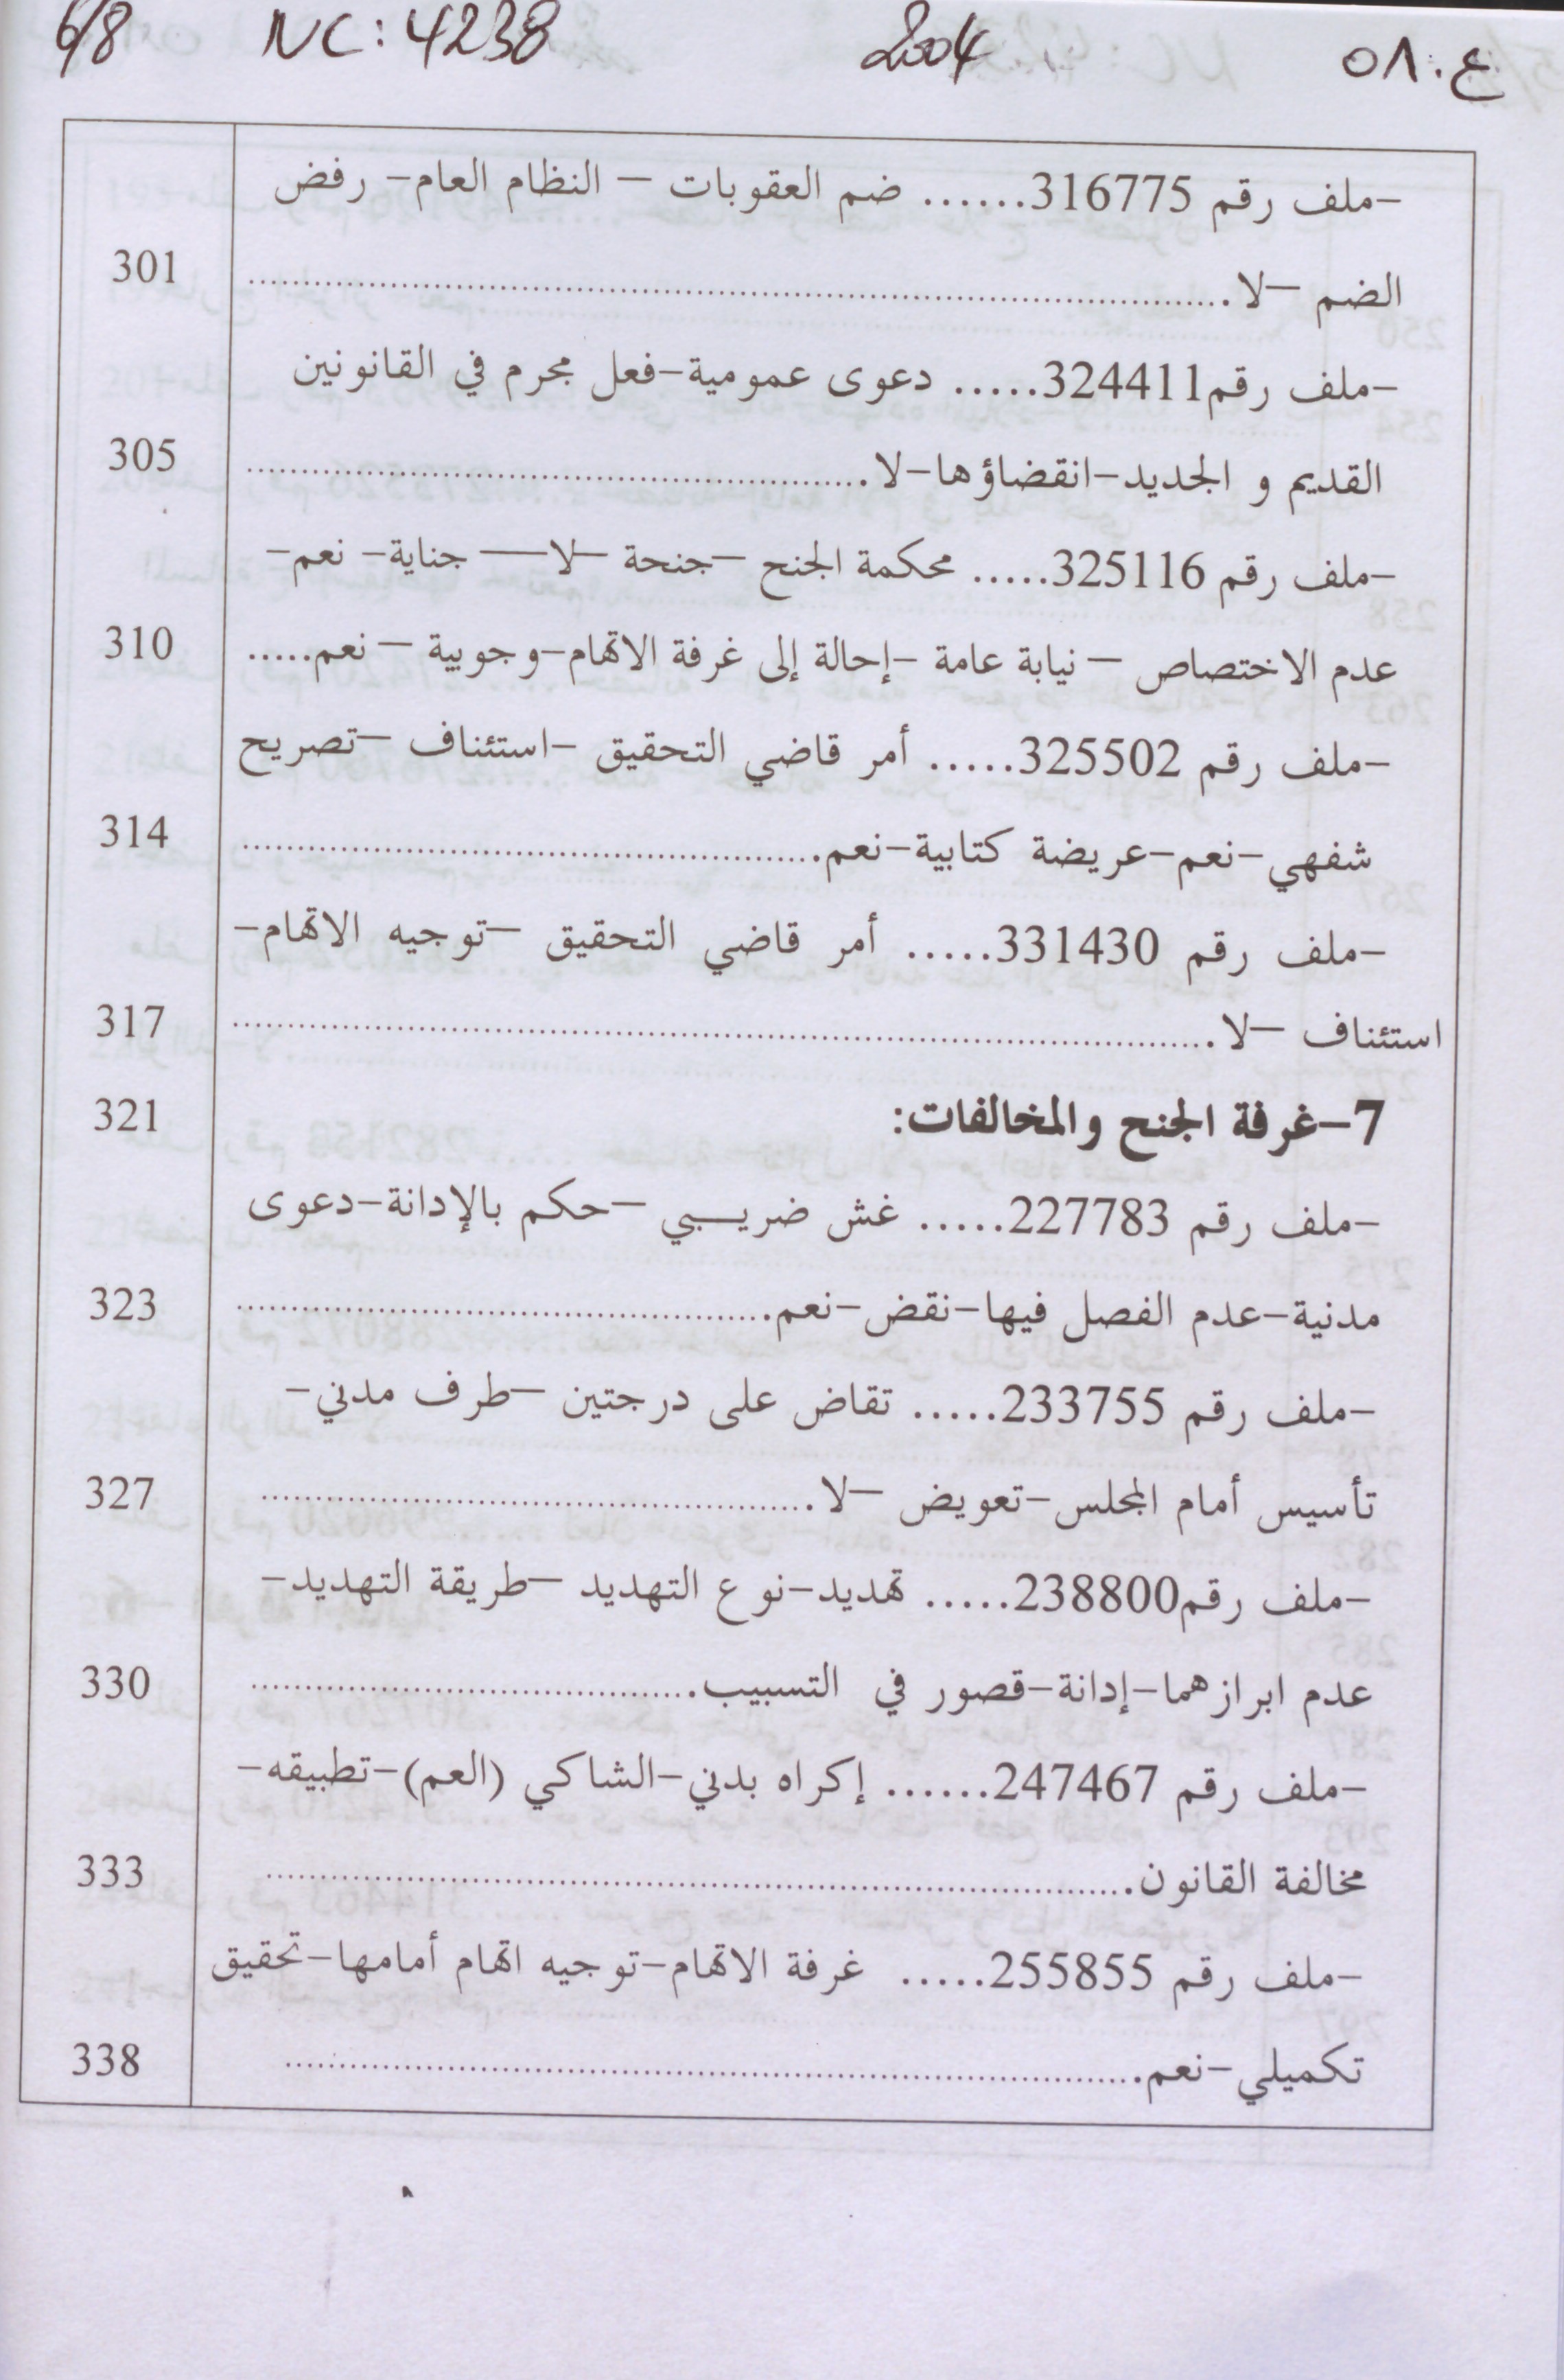 6/8 NC: 4238 2004 ع.٥٨
-ملف رقم 316775...... ضم العقوبات – النظام العام- رفض
الضم –لا. 301
-ملف رقم324411..... دعوى عمومية-فعل مجرم في القانونين
القديم و الجديد-انقضاؤها-لا. 305
-ملف رقم 325116..... محكمة الجنح –جنحة –لا— جناية- نعم-
عدم الاختصاص – نيابة عامة -إحالة إلى غرفة الاتهام-وجوبية – نعم..... 310
-ملف رقم 325502..... أمر قاضي التحقيق -استئناف –تصريح
شفهي-نعم-عريضة كتابية-نعم. 314
-ملف رقم 331430..... أمر قاضي التحقيق –توجيه الاتهام-
استئناف –لا. 317
7-غرفة الجنح والمخالفات: 321
-ملف رقم 227783..... غش ضريبي –حكم بالإدانة-دعوى
مدنية-عدم الفصل فيها-نقض-نعم. 323
-ملف رقم 233755..... تقاض على درجتين –طرف مدني-
تأسيس أمام المجلس-تعويض –لا. 327
-ملف رقم238800..... تهديد-نوع التهديد –طريقة التهديد-
عدم ابرازهما-إدانة-قصور في التسبيب. 330
-ملف رقم 247467...... إكراه بدني-الشاكي (العم)-تطبيقه-
مخالفة القانون. 333
-ملف رقم 255855..... غرفة الاتهام-توجيه اتهام أمامها-تحقيق
تكميلي-نعم. 338